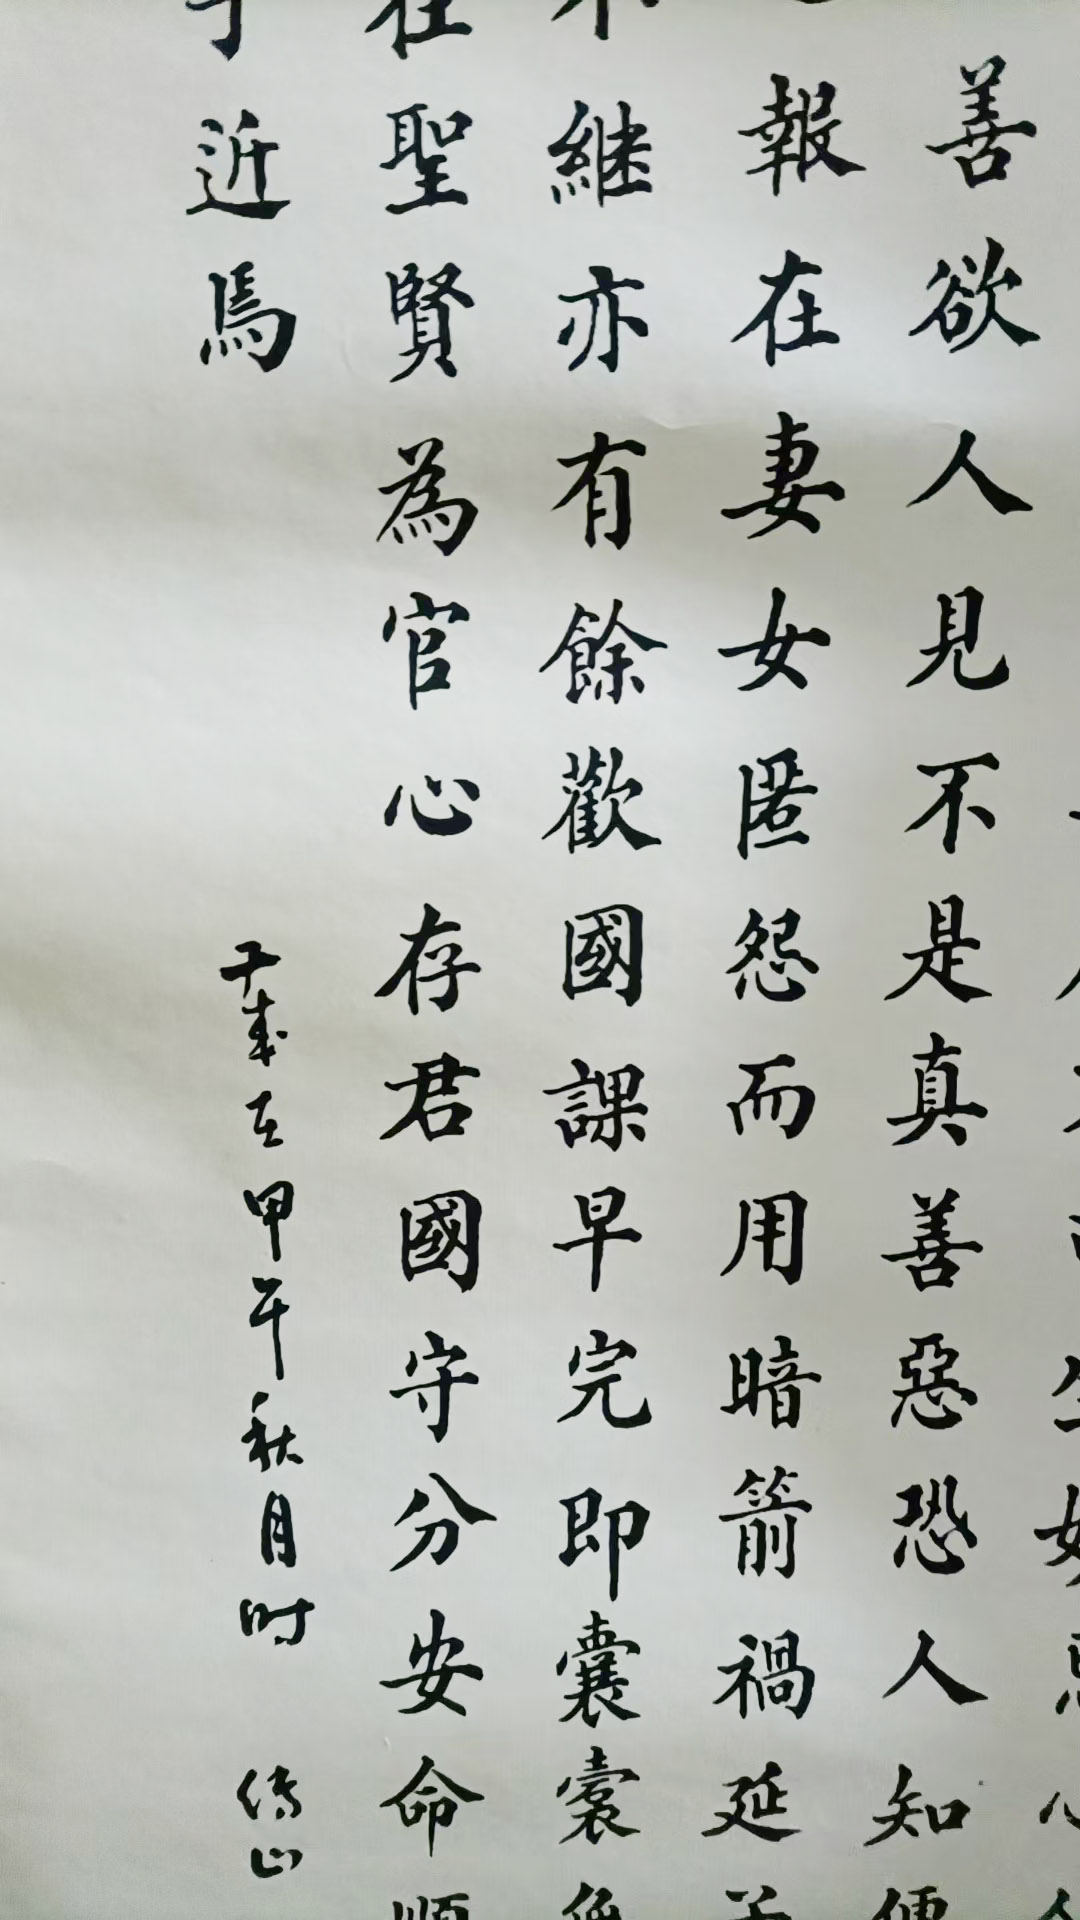 善欲人見不是真善惡恐人知便
報在妻女匿怨而用暗箭禍延子
継亦有餘歡國課早完即囊橐無
在聖賢為官心存君國守分安命順
乎近焉
甲午秋月時